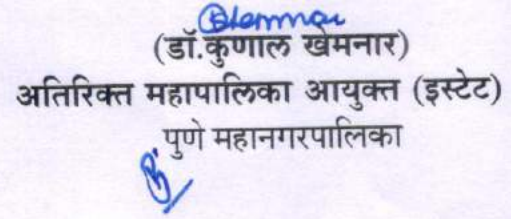 (डॉ.कुणाल खेमनार)
अतिरिक्त महापालिका आयुक्त (इस्टेट)
पुणे महानगरपालिका